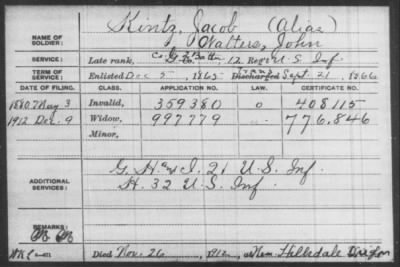 NAME OF SOLDIER: Kintz, Jacob (Alias)
Walters, John
SERVICE: Late rank, Co. G. 2 Batt. 12 Reg't U.S. Inf.
TERM OF SERVICE: Enlisted Dec 5, 1865 Discharged Trans Sept. 21, 1866
DATE OF FILING. CLASS. APPLICATION NO. CERTIFICATE NO.
1880 May 3 Invalid, 359380 408115
1912 Dec. 9 Widow, 997779 776,846
Minor,
ADDITIONAL SERVICES: G. H and I. 21 U.S. Inf.
H. 32 U.S. Inf.
REMARKS:
Died Nov. 26, 1912, at Hillsdale Oregon